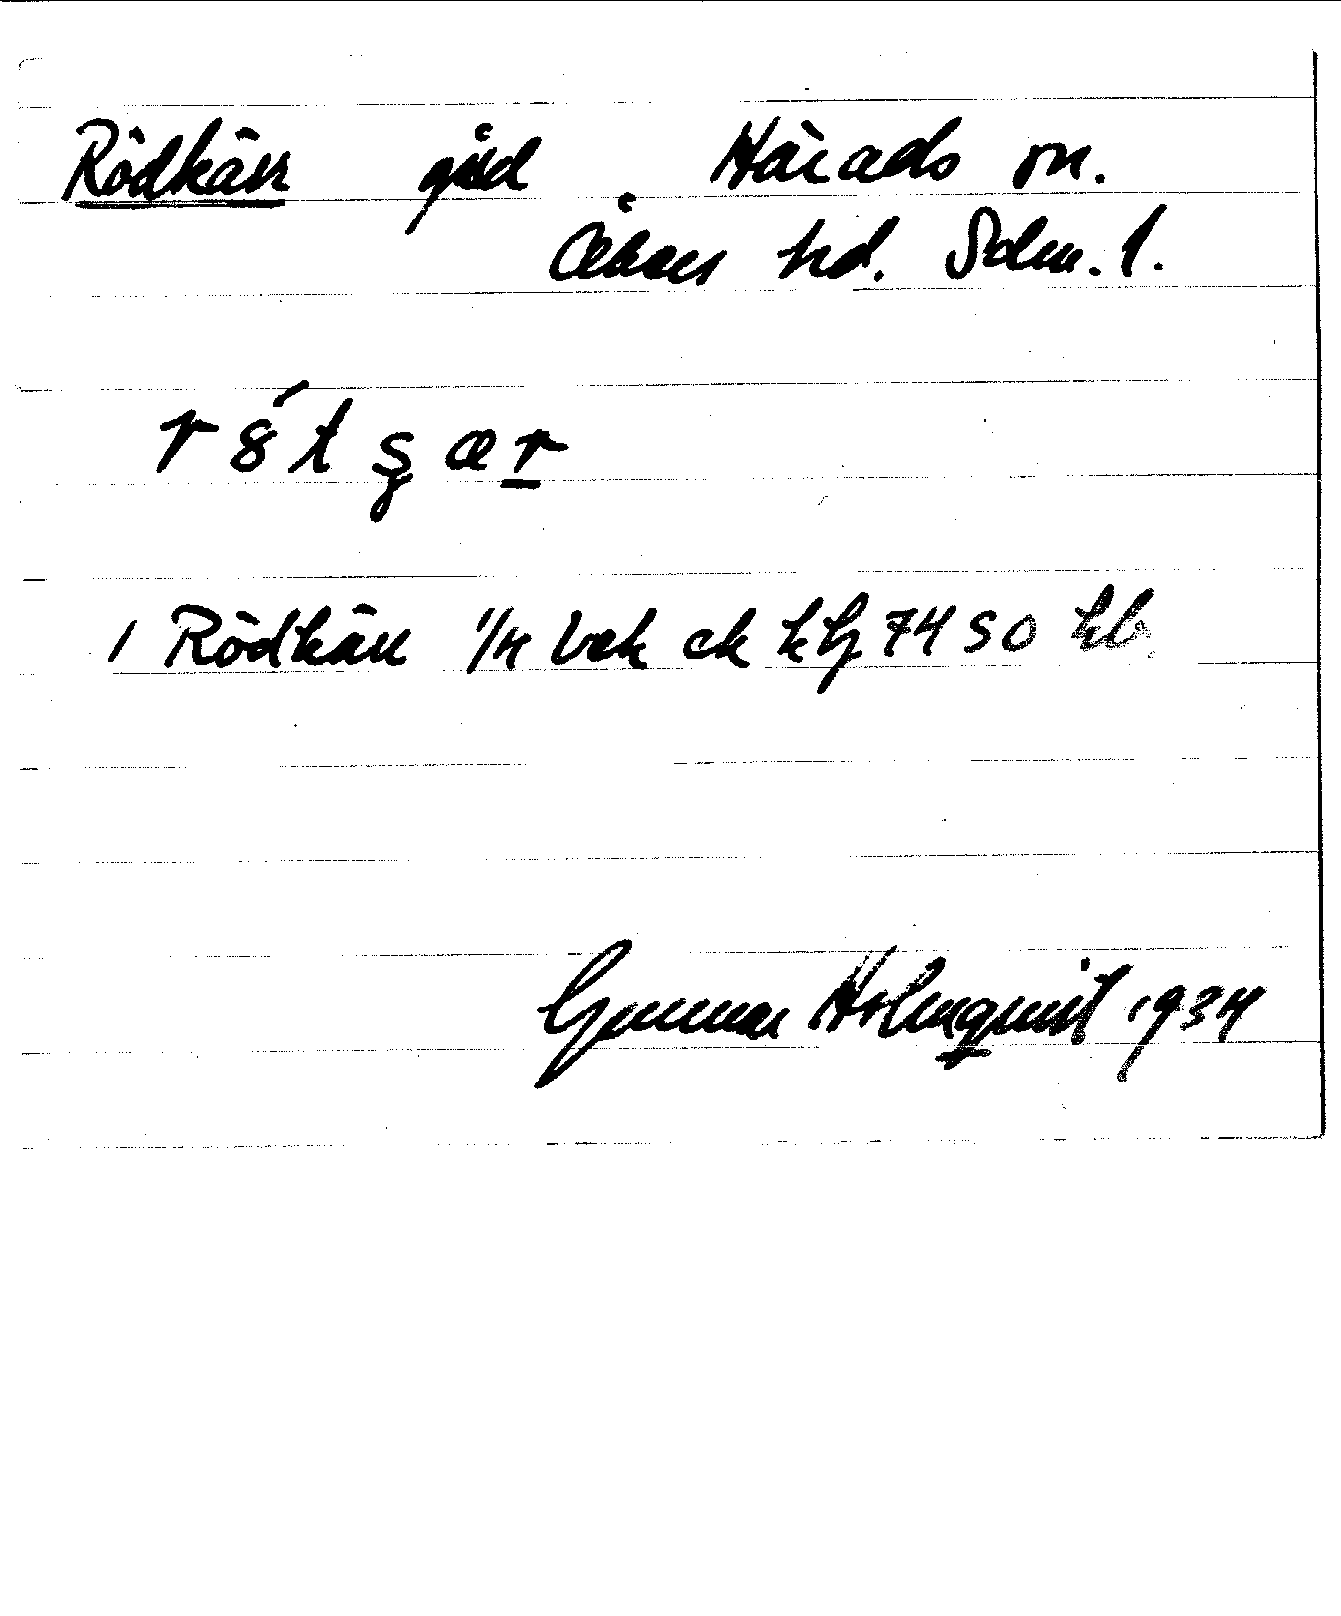 Rödkärr gård Härads sn.
Åkers hd. Sdm. l.
r 8́ t ş æ r
1 Rödkärr 1/4 bek ek 7450 kb.
Gunnar Holmquist 1934